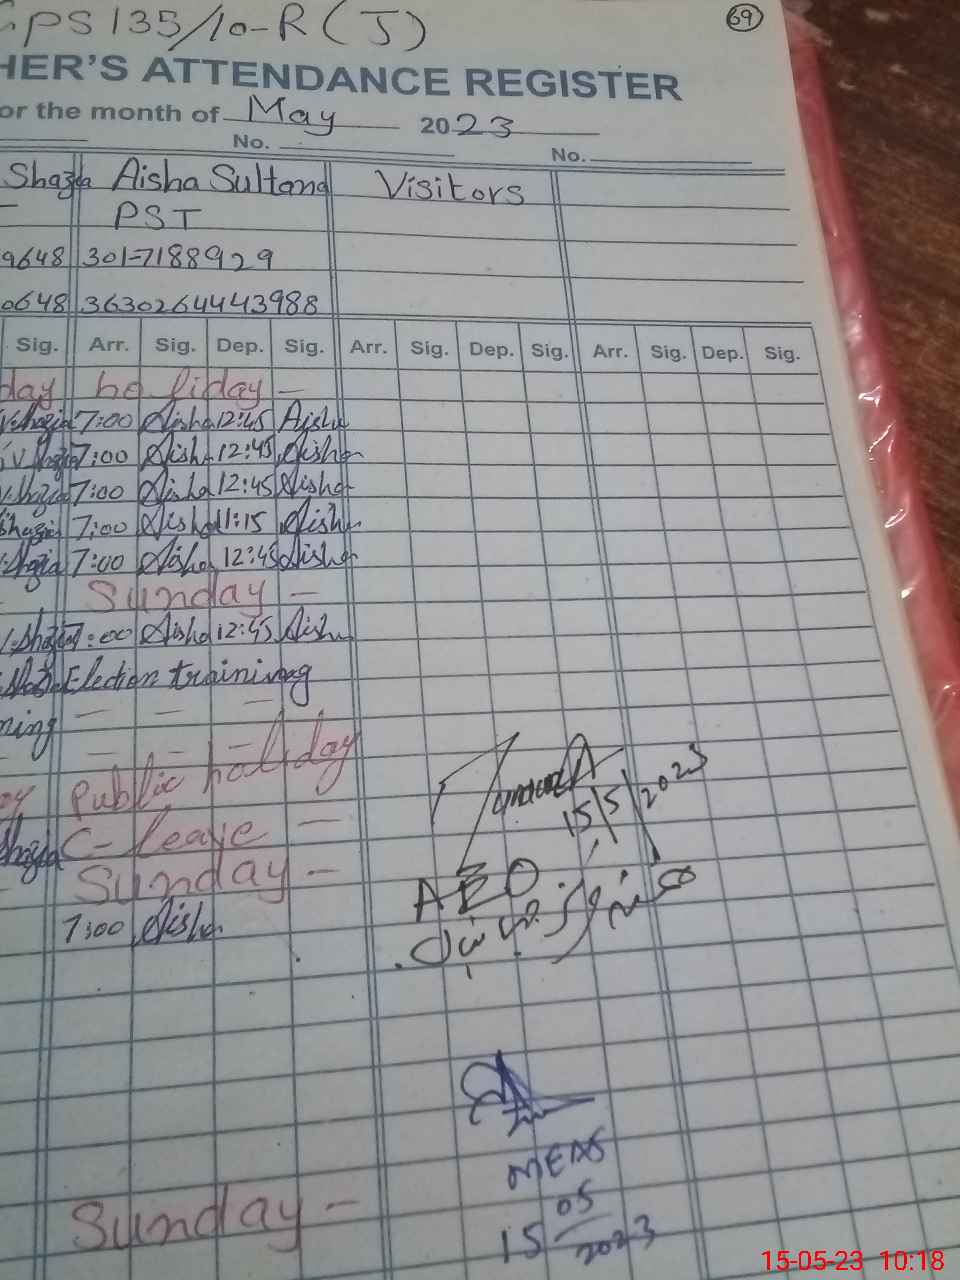 GPS 135/10-R (J)
69
HER'S ATTENDANCE REGISTER
or the month of May 2023
No.
No.
Shazia Aisha Sultana Visitors
PST
9648 301-7188929
0648 3630264443988
Sig. Arr. Sig. Dep. Sig. Arr. Sig. Dep. Sig. Arr. Sig. Dep. Sig.
day holiday -
Shazia 7:00 Aisha 12:45 Aisha
Shazia 7:00 Aisha 12:45 Aisha
Shazia 7:00 Aisha 12:45 Aisha
Shazia 7:00 Aisha 11:15 Aisha
Shazia 7:00 Aisha 12:45 Aisha
Sunday -
Shazia 7:00 Aisha 12:45 Aisha
Election training
ning - - -
- - -
Public holiday
Shazia C-leave -
15/5/2023
Sunday -
AEO
7:00 Aisha
MEAS
15 05 2023
Sunday -
15-05-23 10:18